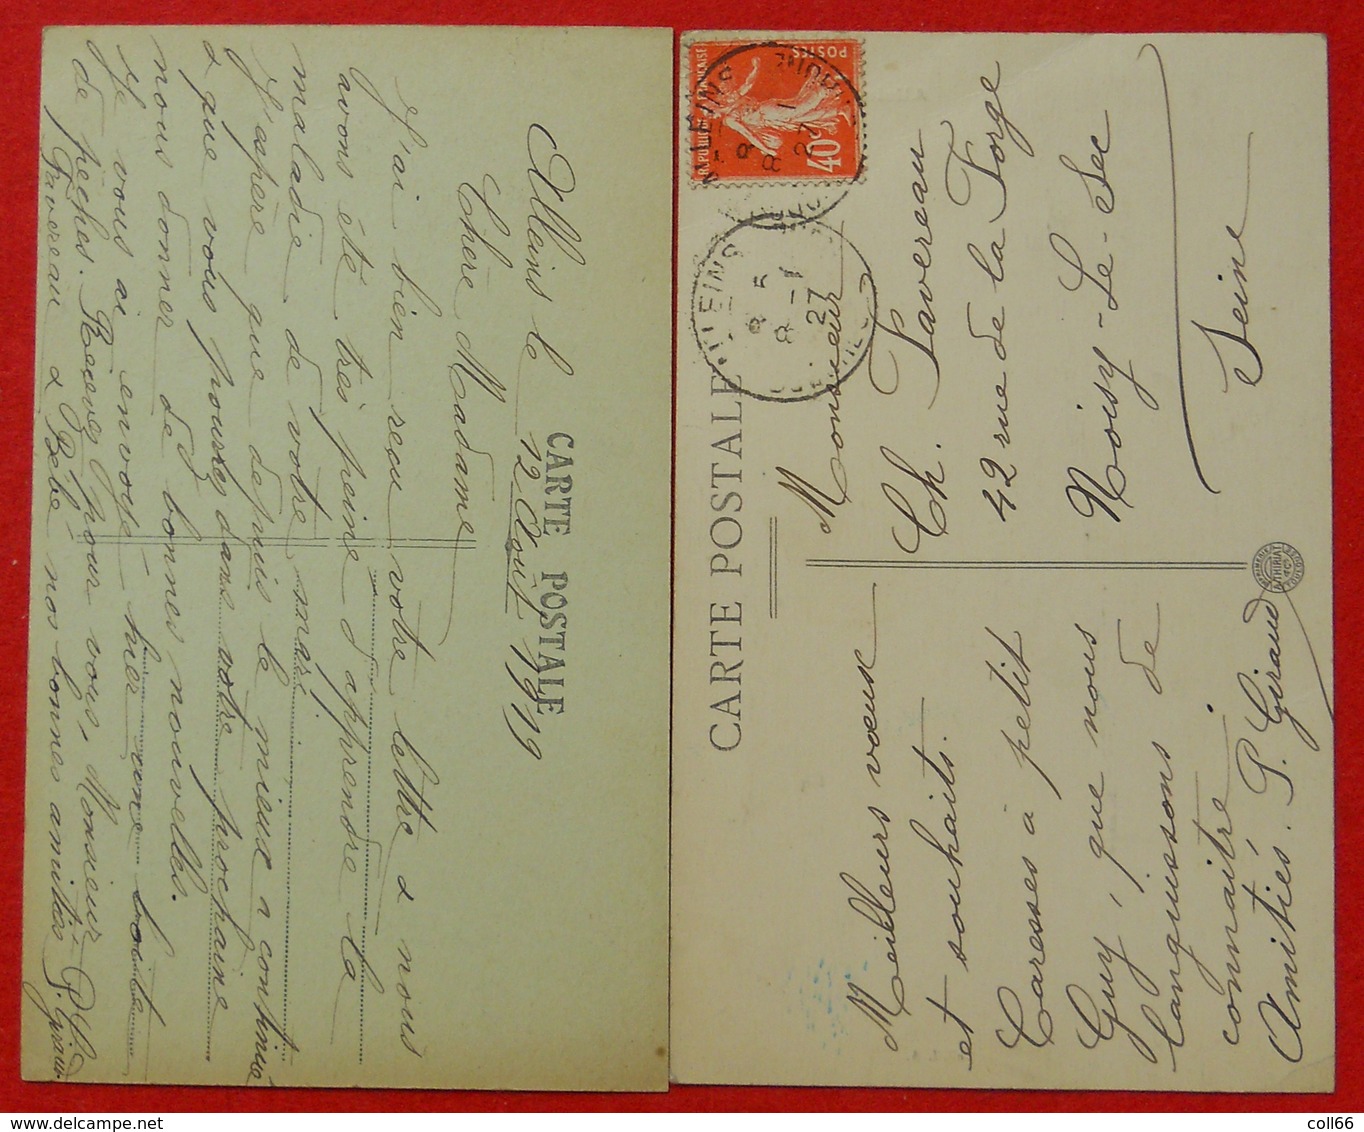 CARTE POSTALE
Alleins le 12 Août 1919
Chère Madame
J'ai bien reçu votre lettre & nous
avons été très peiné d'apprendre la
maladie de votre mari.
J'espère que depuis le mieux a continué
& que vous pourrez dans votre prochaine
nous donner de bonnes nouvelles.
Je vous ai envoyé hier une boîte
de pêches. Recevez pour vous, Monsieur
Favereau & Bébé nos bonnes amitiés P. Giraud
CARTE POSTALE
REPUBLIQUE FRANÇAISE
POSTES
40c
ALLEINS
27
ALLEINS
27
Monsieur
Ch. Favereau
42 rue de la Forge
Noisy-Le-Sec
Seine
Meilleurs vœux
et souhaits.
Caresses à petit
Guy, que nous
languissons de
connaître
Amitiés. P. Giraud
THIRIAT
coll66